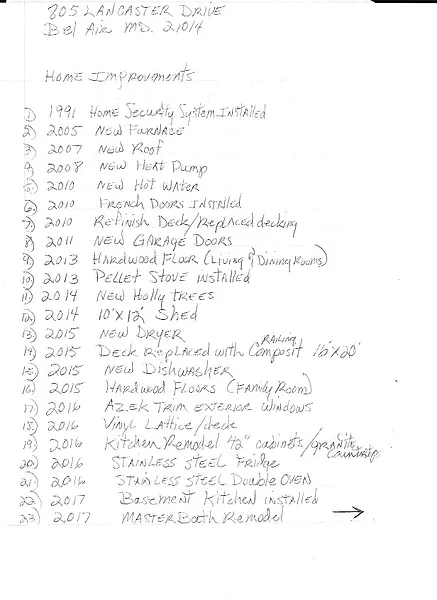 805 LANCASTER DRIVE
Bel Air MD. 21014
HOME IMPROVMENTS
1) 1991 HOME SECURITY SYSTEM INSTALLED
2) 2005 NEW FURNACE
3) 2007 NEW ROOF
4) 2008 NEW HEAT PUMP
5) 2010 NEW HOT WATER
6) 2010 FRENCH DOORS INSTALLED
7) 2010 Refinish Deck/Replaced decking
8) 2011 NEW GARAGE DOORS
9) 2013 HARDWOOD FLOOR (LIVING & DINING ROOMS)
10) 2013 PELLET STOVE INSTALLED
11) 2014 NEW HOLLY TREES
12) 2014 10'X12' Shed
13) 2015 NEW DRYER
14) 2015 DECK REPLACED WITH COMPOSIT RAILING 16'X20'
15) 2015 NEW DISHWASHER
16) 2015 HARDWOOD FLOORS (FAMILY ROOM)
17) 2016 AZEK TRIM EXTERIOR WINDOWS
18) 2016 VINYL LATTICE/deck
19) 2016 KITCHEN REMODEL 42" cabinets/GRANITE COUNTERTOPS
20) 2016 STAINLESS STEEL FRIDGE
21) 2016 STAINLESS STEEL Double OVEN
22) 2017 Basement Kitchen installed
23) 2017 MASTER Bath Remodel →